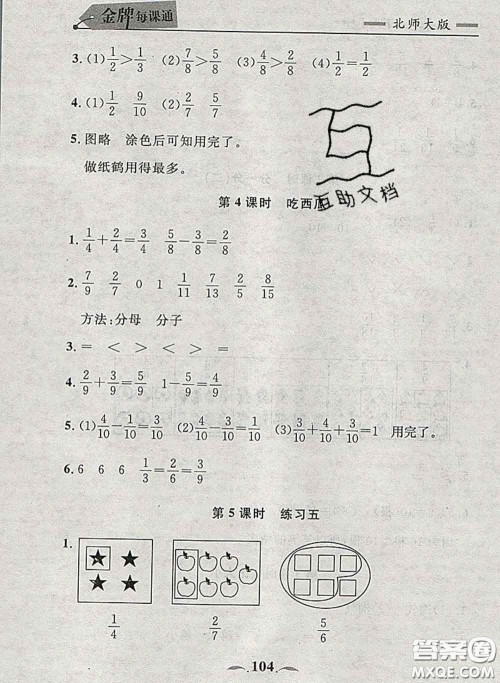 金牌每课通
北师大版
3. (1) 1/2 > 1/5 (2) 7/8 > 5/8 (3) 5/9 > 2/9 (4) 1/2 = 2/4
4. (1) 1/2 9/10 (2) 2/7 5/7
5. 图略 涂色后可知用完了。
做纸鹤用得最多。
互助文档
第 4 课时 吃西
1. 1/4 + 2/4 = 3/4 5/8 - 3/8 = 2/8
2. 7/9 2/7 0 1 1/11 7/13 2/7 8/15
方法:分母 分子
3. = < > < > =
4. 2/9 + 3/9 = 5/9 1 - 5/9 = 4/9
5. (1) 4/10 - 3/10 = 1/10 (2) 4/10 - 3/10 = 1/10 (3) 3/10 + 4/10 + 3/10 = 1 用完了。
6. 6 6 6 1/3 = 2/6 = 3/9
第 5 课时 练习五
1.
1/4 2/7 5/6
104
作业帮